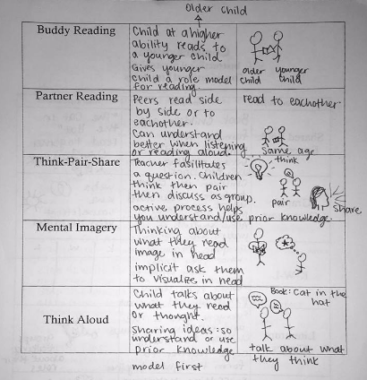 older child
Buddy Reading
Child at a higher
ability reads to
a younger child
Gives younger
child a role model
for reading.
older younger
child child
Partner Reading
Peers read side
by side or to
eachother.
Can understand
better when listening
or reading aloud.
read to eachother.
Same age
Think-Pair-Share
Teacher fasilitates
a question. Children
think then pair
then discuss as group.
active process helps
you understand/use prior knowledge
think
pair
share
Mental Imagery
Thinking about
what they read
image in head
implicit ask them
to visualize in head
Think Aloud
Child talks about
what they read
or thought.
Sharing ideas: so
understand or use
prior knowledge
model first
Book: Cat in the
hat
talk about what
they think